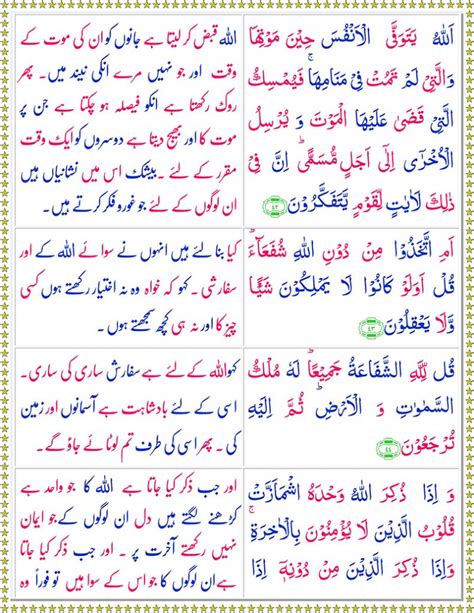 اَللّٰهُ یَتَوَفَّی الْاَنْفُسَ حِیْنَ مَوْتِهَا
وَالَّتِیْ لَمْ تَمُتْ فِیْ مَنَامِهَا ۚ فَیُمْسِكُ
الَّتِیْ قَضٰی عَلَیْهَا الْمَوْتَ وَ یُرْسِلُ
الْاُخْرٰۤی اِلٰۤی اَجَلٍ مُّسَمًّی ؕ اِنَّ فِیْ
ذٰلِكَ لَاٰیٰتٍ لِّقَوْمٍ یَّتَفَكَّرُوْنَ ﴿۴۲﴾
اللہ قبض کر لیتا ہے جانوں کو ان کی موت کے
وقت اور جو نہیں مرے انکی نیند میں۔ پھر
روک رکھتا ہے انکو فیصلہ ہو چکتا ہے جن پر
موت کا اور بھیج دیتا ہے دوسروں کو ایک وقت
مقرر کے لئے ۔ بیشک اس میں نشانیاں ہیں
ان لوگوں کے لئے جو غور و فکر کرتے ہیں۔
اَمِ اتَّخَذُوْا مِنْ دُوْنِ اللّٰهِ شُفَعَآءَ ؕ
قُلْ اَوَلَوْ كَانُوْا لَا یَمْلِكُوْنَ شَیْـًٔا
وَّلَا یَعْقِلُوْنَ ﴿۴۳﴾
کیا بنا لئے ہیں انہوں نے سوائے اللہ کے اور
سفارشی۔ کہو کہ خواہ وہ نہ اختیار رکھتے ہوں کسی
چیز کا اور نہ ہی کچھ سمجھتے ہوں۔
قُلْ لِّلّٰهِ الشَّفَاعَةُ جَمِیْعًا ؕ لَهٗ مُلْكُ
السَّمٰوٰتِ وَ الْاَرْضِ ؕ ثُمَّ اِلَیْهِ
تُرْجَعُوْنَ ﴿۴۴﴾
کہو اللہ کے لئے ہے سفارش ساری کی ساری۔
اسی کے لئے بادشاہت ہے آسمانوں اور زمین
کی۔ پھر اسی کی طرف تم لوٹائے جاؤ گے۔
وَ اِذَا ذُكِرَ اللّٰهُ وَحْدَهُ اشْمَاَزَّتْ
قُلُوْبُ الَّذِیْنَ لَا یُؤْمِنُوْنَ بِالْاٰخِرَةِ ۚ
وَ اِذَا ذُكِرَ الَّذِیْنَ مِنْ دُوْنِهٖۤ اِذَا
اور جب ذکر کیا جاتا ہے اللہ کا جو واحد ہے
کڑھنے لگتے ہیں دل ان لوگوں کے جو ایمان
نہیں رکھتے آخرت پر۔ اور جب ذکر کیا جاتا
ہے ان لوگوں کا جو اس کے سوا ہیں تو فوراً وہ